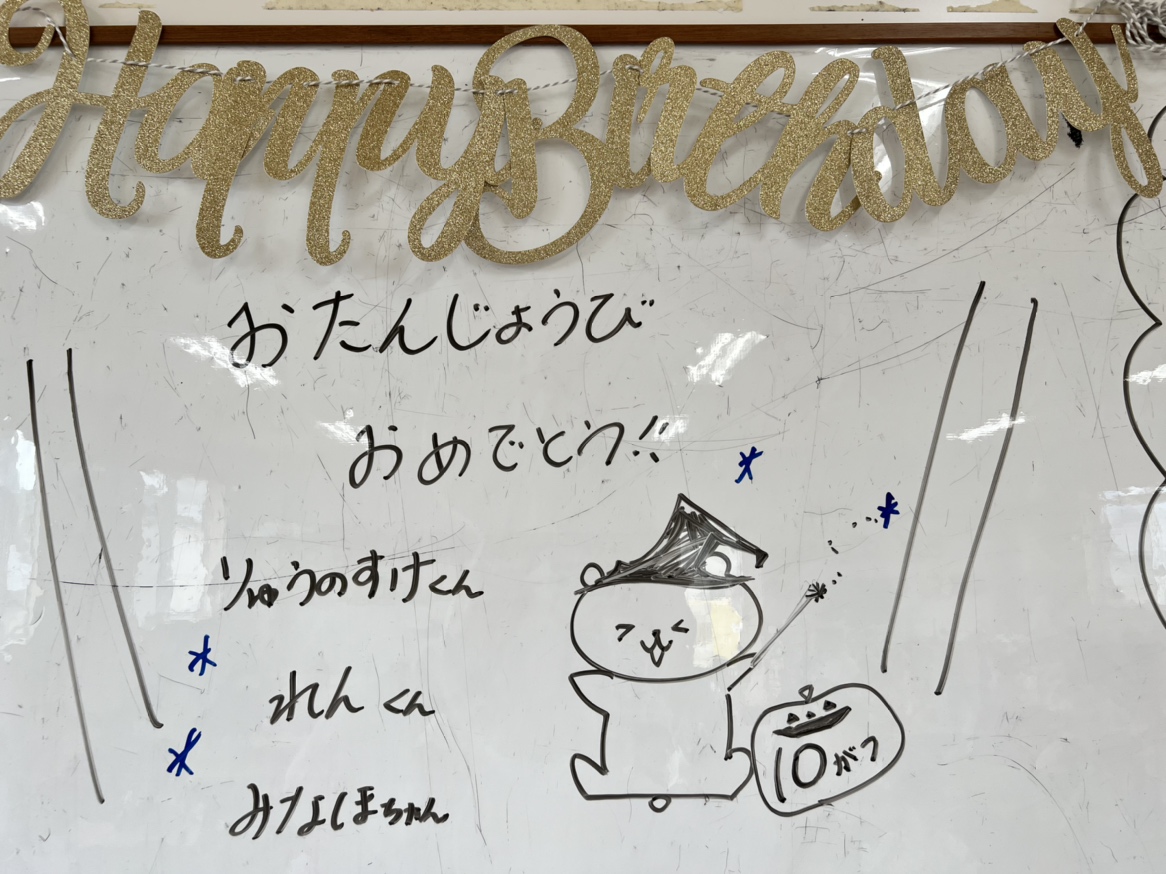 Happy Birthday
おたんじょうび
おめでとう!!
りゅうのすけくん
れんくん
みなほちゃん
10がつ